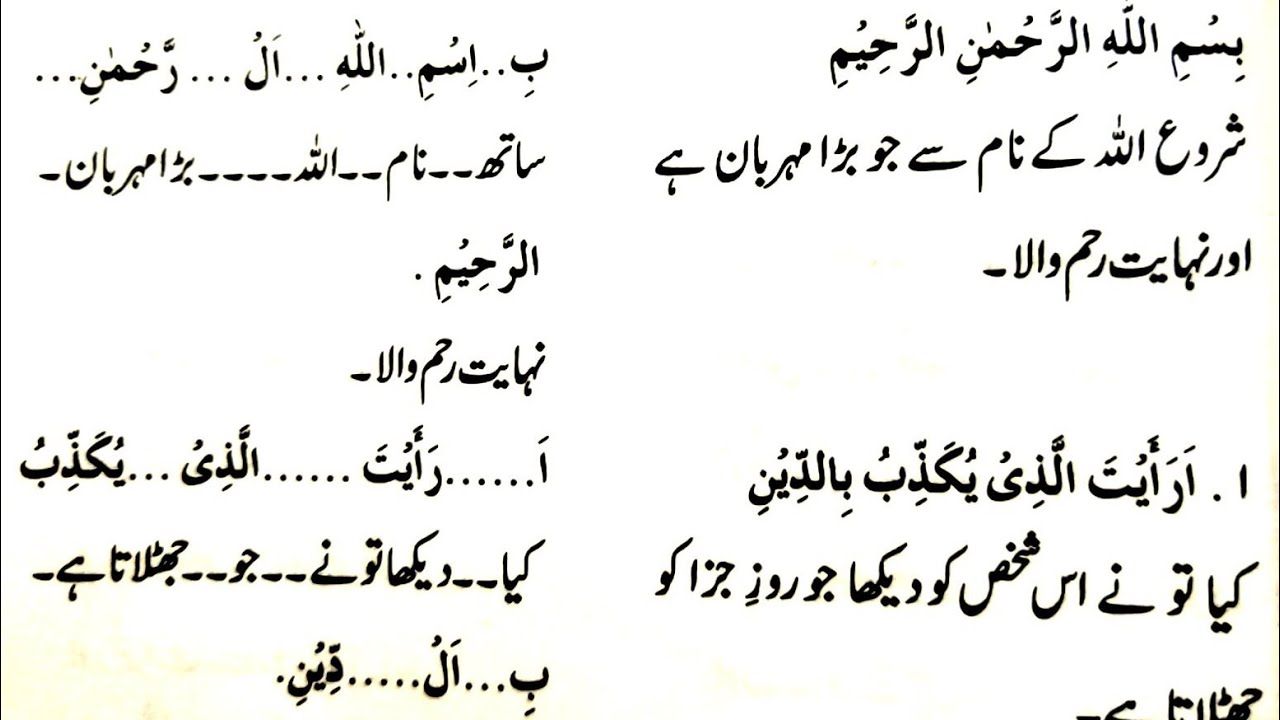 بِسْمِ اللّٰهِ الرَّحْمٰنِ الرَّحِيْمِ
شروع اللہ کے نام سے جو بڑا مہربان ہے
اور نہایت رحم والا۔
۱. اَرَأَيْتَ الَّذِىْ يُكَذِّبُ بِالدِّيْنِ
کیا تو نے اس شخص کو دیکھا جو روزِ جزا کو
جھٹلاتا ہے۔
بِ...اِسْمِ..اللّٰهِ...اَلْ...رَّحْمٰنِ...
ساتھ۔۔نام۔۔اللہ۔۔۔۔بڑا مہربان۔
الرَّحِيْمِ.
نہایت رحم والا۔
اَ......رَأَيْتَ......الَّذِىْ...يُكَذِّبُ
کیا۔۔دیکھا تو نے۔۔جو۔۔جھٹلاتا ہے۔
بِ...اَلْ.....دِّيْنِ.